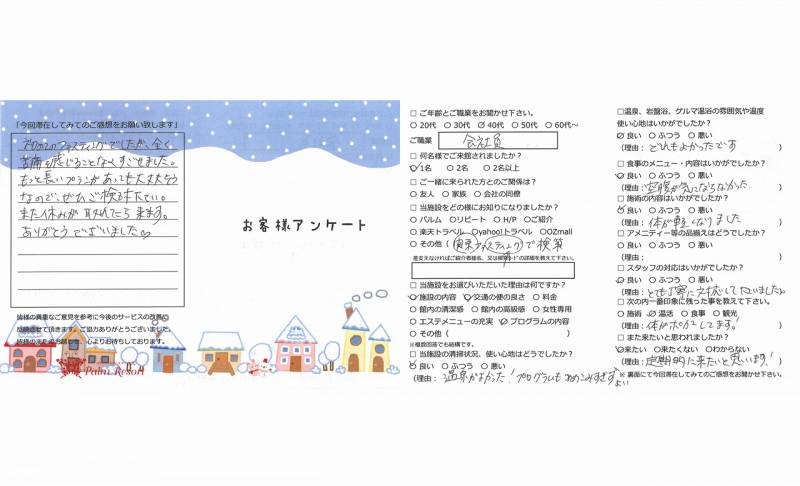 「今回滞在してみてのご感想をお願い致します」
初めてのファスティングでしたが、全く
苦痛を感じることなくすごせました。
もっと長いプランがあっても大丈夫そう
なので、ぜひご検討下さい。
また休みが取れたら来ます。
ありがとうございました♡
皆様の貴重なご意見を参考に今後のサービスの改善に
反映させて頂きます。ご協力ありがとうございました。
皆様のまたのお越しを、心よりお待ちしております。
Palm Resort
お客様アンケート
□ ご年齢とご職業をお聞かせ下さい。
○ 20代 ○ 30代 ○ 40代 ○ 50代 ○ 60代~
ご職業 会社員
□ 何名様でご来館されましたか?
○ 1名 ○ 2名 ○ 2名以上
□ ご一緒に来られた方とのご関係は?
○ 友人 ○ 家族 ○ 会社の同僚
□ 当施設をどの様にお知りになりましたか?
○ パルム ○ リピート ○ H/P ○ ご紹介
○ 楽天トラベル ○ Yahoo!トラベル ○ OZmall
○ その他( 関東 ファスティング で検索
差支えなければご紹介者様名、又は検索ワードの詳細を教えて下さい。
□ 当施設をお選びいただいた理由は何ですか?
○ 施設の内容 ○ 交通の便の良さ ○ 料金
○ 館内の清潔感 ○ 館内の高級感 ○ 女性専用
○ エステメニューの充実 ○ プログラムの内容
○ その他( )
※複数回答でも結構です。
□ 当施設の清掃状況、使い心地はどうでしたか?
○ 良い ○ ふつう ○ 悪い
(理由: 温泉がよかった!プログラムも
よい
□ 温泉、岩盤浴、ゲルマ温浴の雰囲気や温度
使い心地はいかがでしたか?
○ 良い ○ ふつう ○ 悪い
(理由: どれもよかったです )
□ 食事のメニュー・内容はいかがでしたか?
○ 良い ○ ふつう ○ 悪い
(理由: 空腹が気にならなかった )
□ 施術の内容はいかがでしたか?
○ 良い ○ ふつう ○ 悪い
(理由: 体が軽くなりました )
□ アメニティー等の品揃えはどうでしたか?
○ 良い ○ ふつう ○ 悪い
(理由: )
□ スタッフの対応はいかがでしたか?
○ 良い ○ ふつう ○ 悪い
(理由: とても丁寧に対応して下さいました。
□ 次の内一番印象に残った事を教えて下さい。
○ 施術 ○ 温活 ○ 食事 ○ 観光
(理由: 体がポカポカしてます! )
□ また来たいと思われましたか?
○ 来たい ○ 来たくない ○ わからない
(理由: 定期的に来たいと思います! )
※ 裏面にて今回滞在してみてのご感想をお聞かせ下さい。